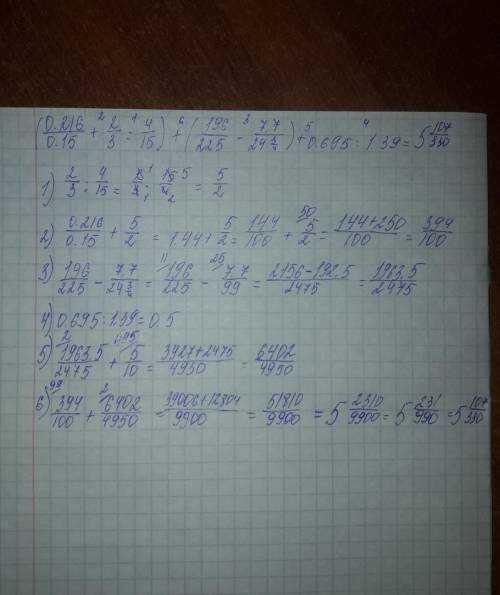 (0.216/0.15 + 2/3 : 4/15) + (196/225 - 7.7/24 3/4) + 0.695 : 1.39 = 5 107/330
1) 2/3 : 4/15 = 2/3 · 15/4 = 5/2
2) 0.216/0.15 + 5/2 = 1.44 + 5/2 = 144/100 + 5/2 = 144+250/100 = 394/100
3) 196/225 - 7.7/24 3/4 = 196/225 - 7.7/99 = 2156-192.5/2475 = 1963.5/2475
4) 0.695 : 1.39 = 0.5
5) 1963.5/2475 + 5/10 = 3927+2475/4950 = 6402/4950
6) 394/100 + 6402/4950 = 39006+12804/9900 = 51810/9900 = 5 2310/9900 = 5 231/990 = 5 107/330